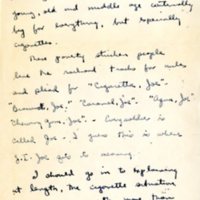 young, old and middle age continually
beg for everything, but especially
cigarettes.
These poverty stricken people
line the railroad tracks for miles
and plead for "Cigarette, Joe".
"Biscuit, Joe", "Caramel, Joe". "Cigar, Joe"
"Chewing Gum, Joe". - Every soldier is
called Joe - I guess this is where
G.I. Joe got its meaning.
I should go in to explaining
at length, the cigarette situation
more than